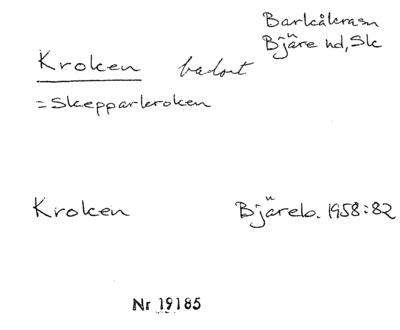 Barkåkra sn
Bjäre hd, Sk
Kroken badort
= Skepparkroken
Kroken Bjäreb. 1958:82
Nr 19185